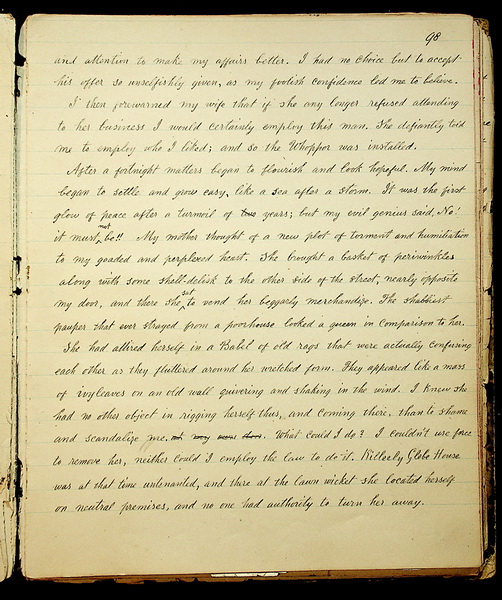 98
and attention to make my affairs better. I had no choice but to accept
his offer so unselfishly given, as my foolish confidence led me to believe.
I then forewarned my wife that if she any longer refused attending
to her business I would certainly employ this man. She defiantly told
me to employ who I liked; and so the Whopper was installed.
After a fortnight matters began to flourish and look hopeful. My mind
began to settle and grow easy, like a sea after a storm. It was the first
glow of peace after a turmoil of years; but my evil genius said, No!
it must not be!! My mother thought of a new plot of torment and humiliation
to my goaded and perplexed heart. She brought a basket of periwinkles
along with some shell-delisk to the other side of the street, nearly opposite
my door, and there she sat to vend her beggarly merchandize. The shabbiest
pauper that ever strayed from a poorhouse looked a queen in comparison to her.
She had attired herself in a Babel of old rags that were actually confusing
each other as they fluttered around her wretched form. They appeared like a mass
of ivyleaves on an old wall quivering and shaking in the wind. I knew she
had no other object in rigging herself thus, and coming there, than to shame
and scandalize me. at my own door. What could I do? I couldn't use force
to remove her, neither could I employ the law to do it. Killerly Glebe House
was at that time untenanted, and there at the lawn wicket she located herself
on neutral premises, and no one had authority to turn her away.